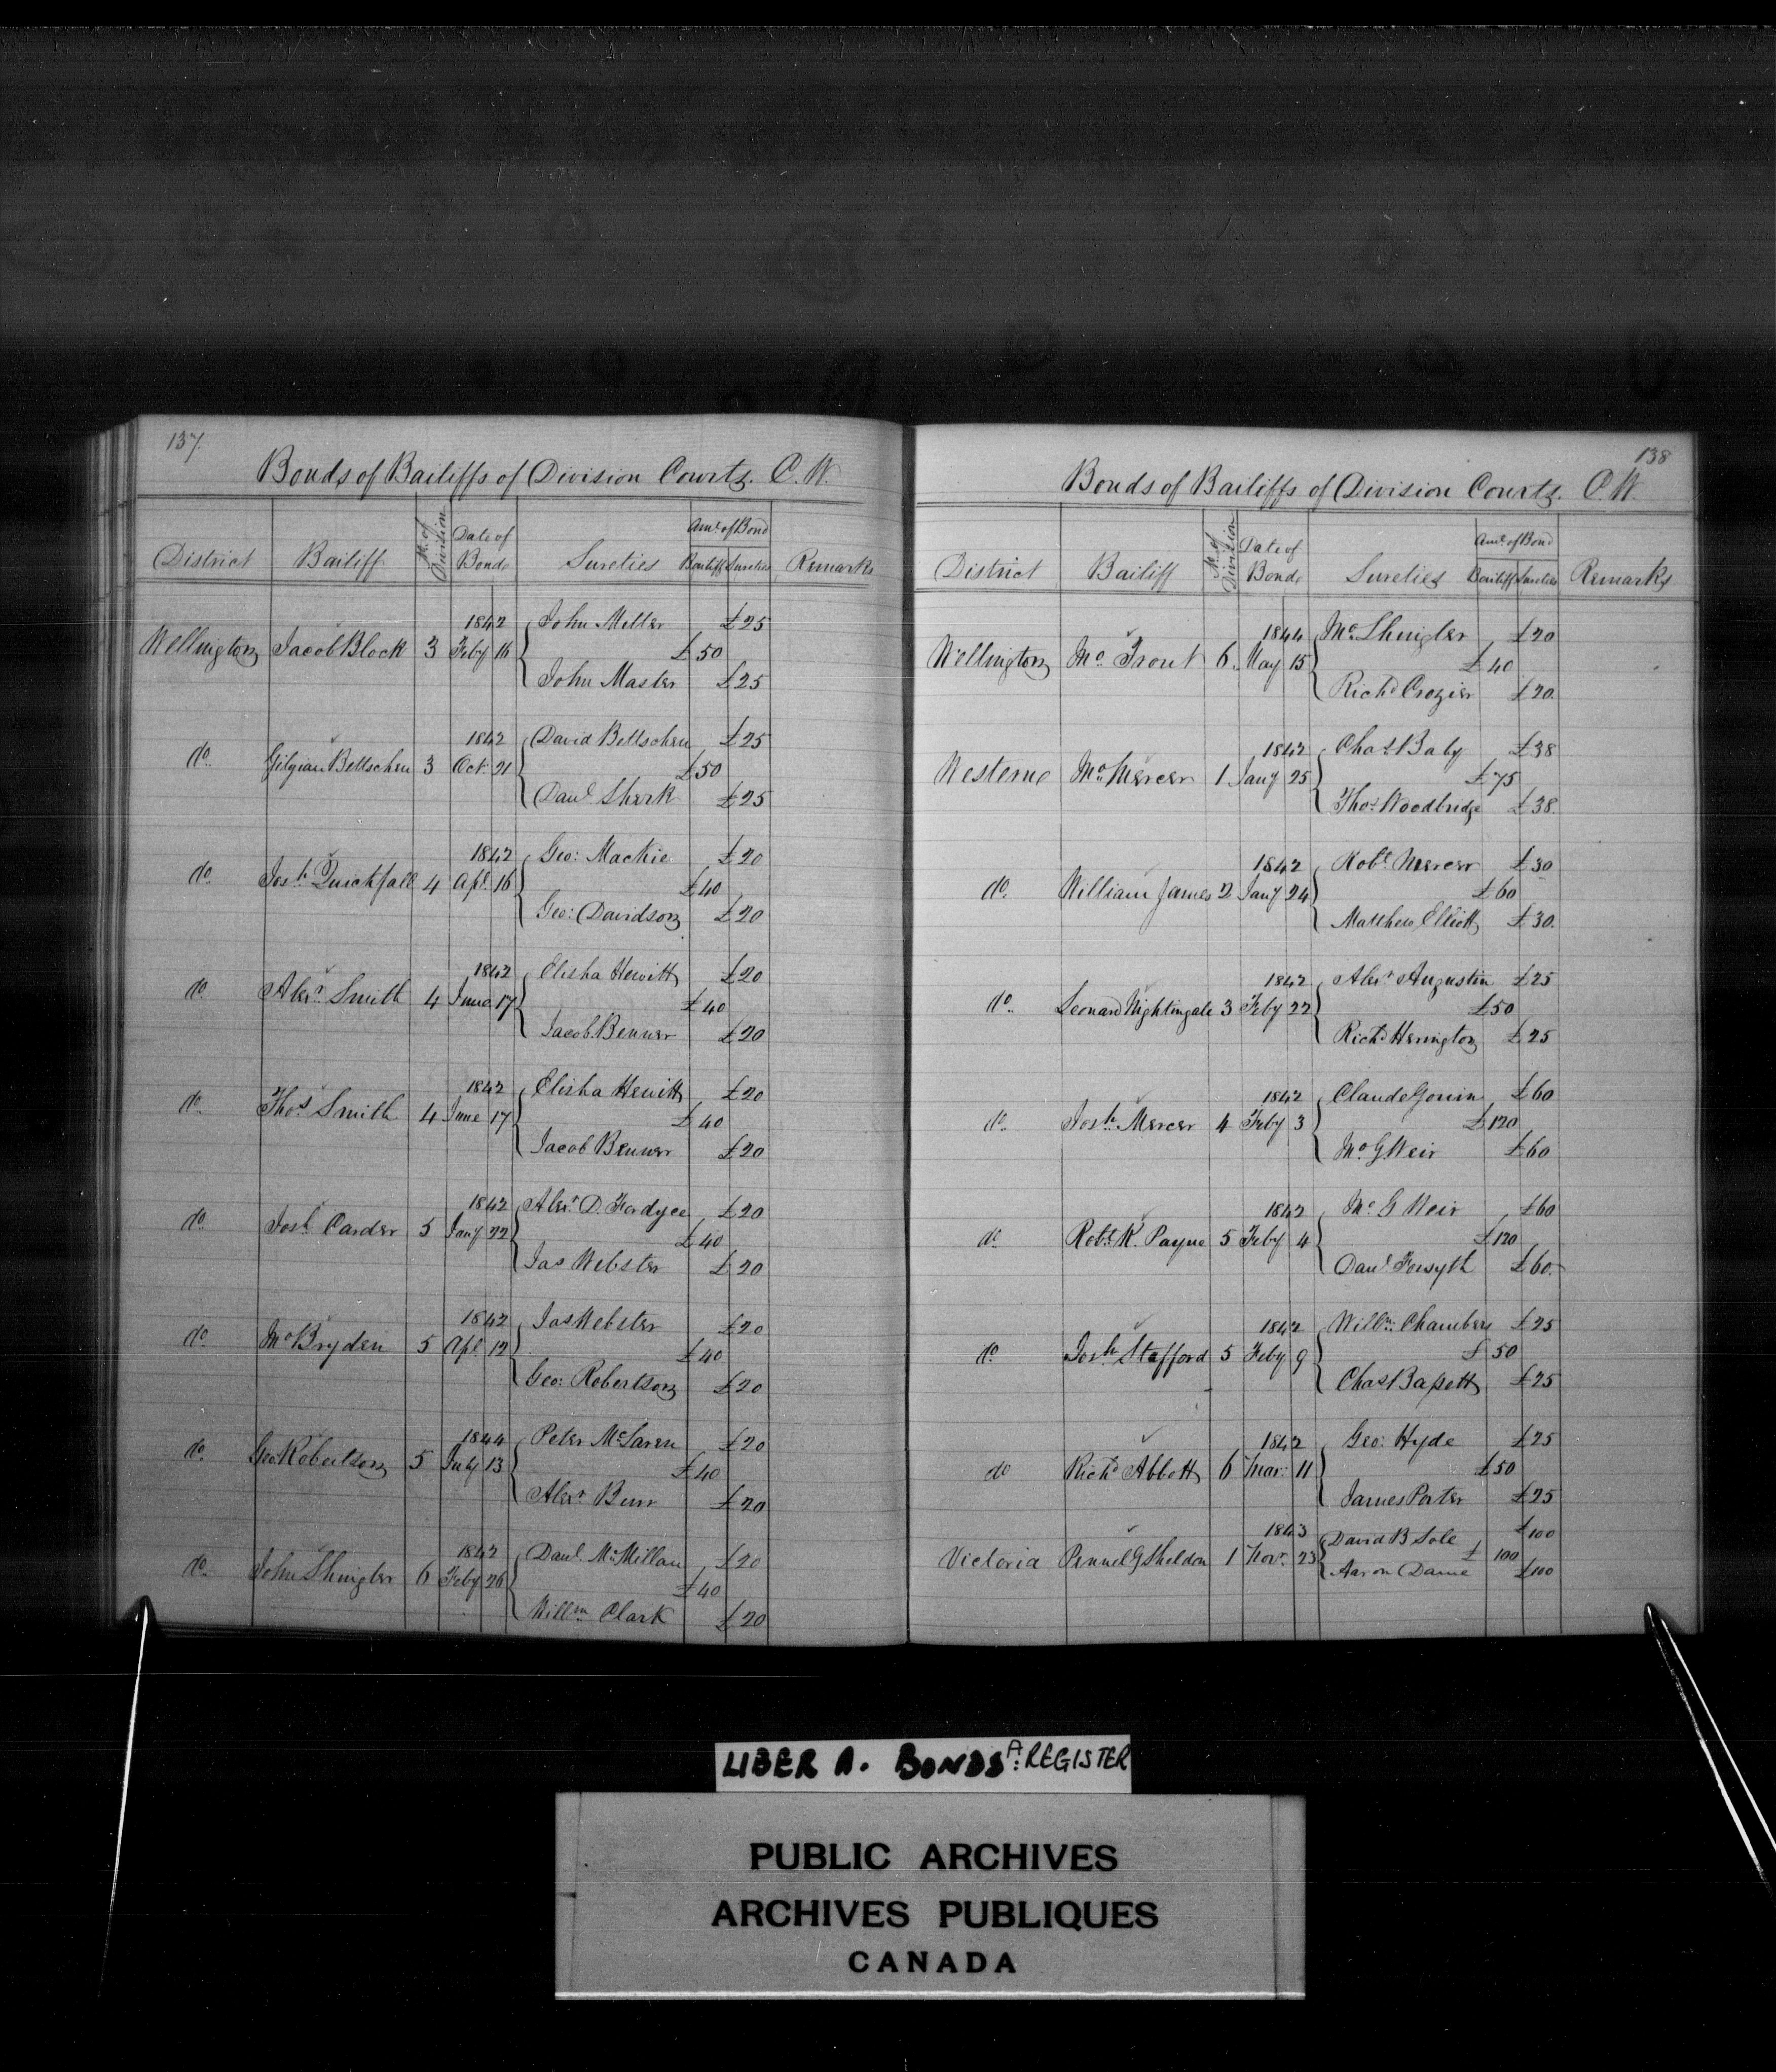 137.
Bonds of Bailiffs of Division Courts. C.W.
District Bailiff No. of Division Date of Bond Sureties Amt. of Bond Bailiff Sureties Remarks
1842 John Miller £25
Wellington Jacob Block 3 Feby 16 £50
John Master £25
1842 David Bettschen £25
do. Gilgian Bettschen 3 Oct. 21 £50
Danl. Sherk £25
1842 Geo: Mackie £20
do. Josh. Quickfall 4 Apl. 16 £40
Geo: Davidson £20
1842 Elisha Hewitt £20
do. Alexr. Smith 4 June 17 £40
Jacob Benner £20
1842 Elisha Hewitt £20
do. Thos Smith 4 June 17 £40
Jacob Benner £20
1842 Alexr. D. Fordyce £20
do. Josh. Carder 5 Jany 22 £40
Jas Webster £20
1842 Jas Webster £20
do. Jno Bryden 5 Apl. 12 £40
Geo: Robertson £20
1844 Peter McLaren £20
do. Geo Robertson 5 July 13 £40
Alexr. Burr £20
1842 Danl. McMillan £20
do. John Shingler 6 Feby 26 £40
Willm. Clark £20
138
Bonds of Bailiffs of Division Courts. C.W.
District Bailiff No. of Division Date of Bond Sureties Amt. of Bond Bailiff Sureties Remarks
1844 Jno. Shingler £20
Wellington Jno. Trout 6. May 15 £40
Richd Crozier £20.
1842 Chas Baby £38
Western Jno. Mercer 1 Jany 25 £75
Thos. Woodbridge £38.
1842 Robt. Mercer £30
do. William James 2 Jany 24 £60
Matthew Elliott £30.
1842 Alexr. Augustin £25
do. Leonard Nightingale 3 Feby 22 £50
Richd Herrington £25
1842 Claude Gouin £60
do. Josh. Mercer 4 Feby 3 £120
Jno. G Weir £60
1842 Jno. G Weir £60
do. Robt. K. Payne 5 Feby 4 £120
Danl. Forsyth £60.
1842 Willm. Chambers £25
do. Josh. Stafford 5 Feby 9 £50
Chas Bassett £25
1842 Geo: Hyde £25
do Richd Abbott 6 Mar: 11 £50
James Porter £25
1843 David B Sole £100
Victoria Pennel G Sheldon 1 Novr. 23 £100
Aaron Dame £100
LIBER A. BONDS A: REGISTER
PUBLIC ARCHIVES
ARCHIVES PUBLIQUES
CANADA